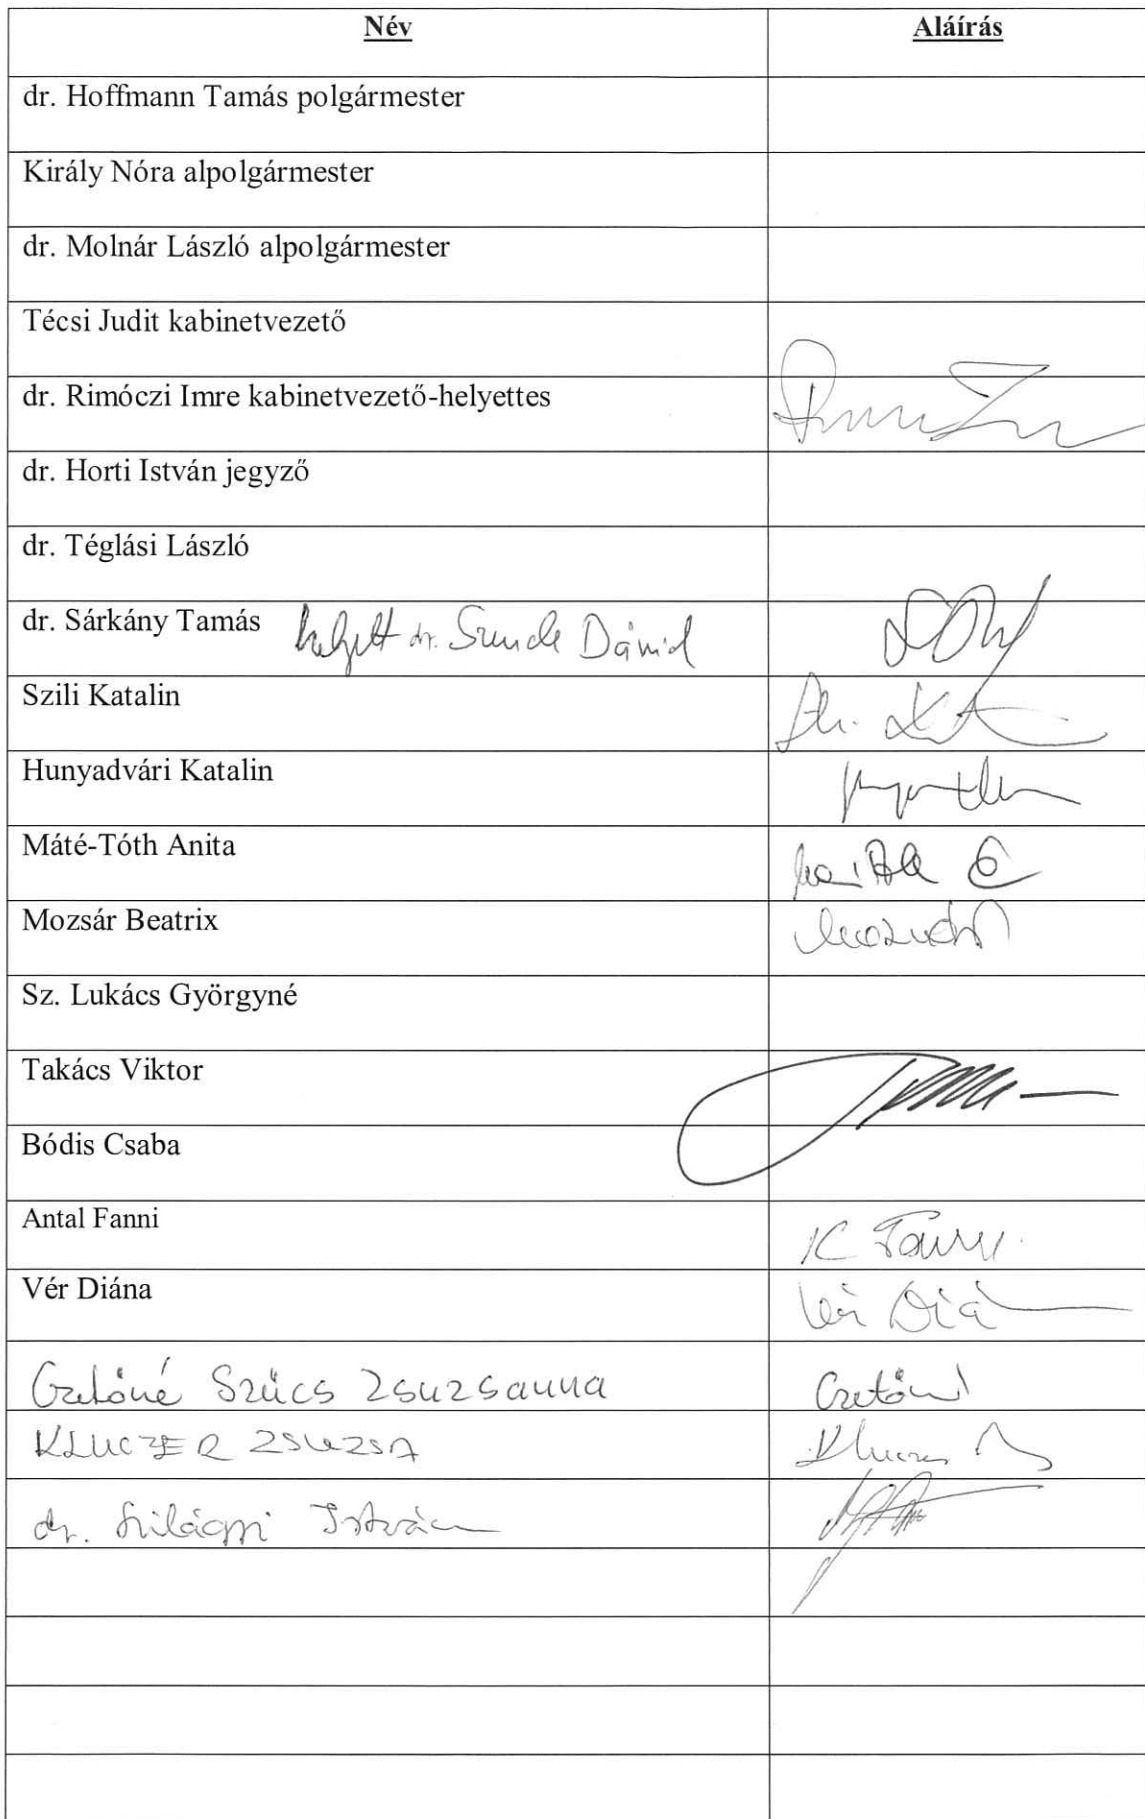 Név Aláírás
dr. Hoffmann Tamás polgármester
Király Nóra alpolgármester
dr. Molnár László alpolgármester
Técsi Judit kabinetvezető
dr. Rimóczi Imre kabinetvezető-helyettes
dr. Horti István jegyző
dr. Téglási László
dr. Sárkány Tamás helyett dr. Dávid
Szili Katalin
Hunyadvári Katalin
Máté-Tóth Anita
Mozsár Beatrix
Sz. Lukács Györgyné
Takács Viktor
Bódis Csaba
Antal Fanni K Fanny
Vér Diána Vér Diá
Szűcs Zsuzsanna
KLUCZER ZSUZSA
dr. Szilágyi István